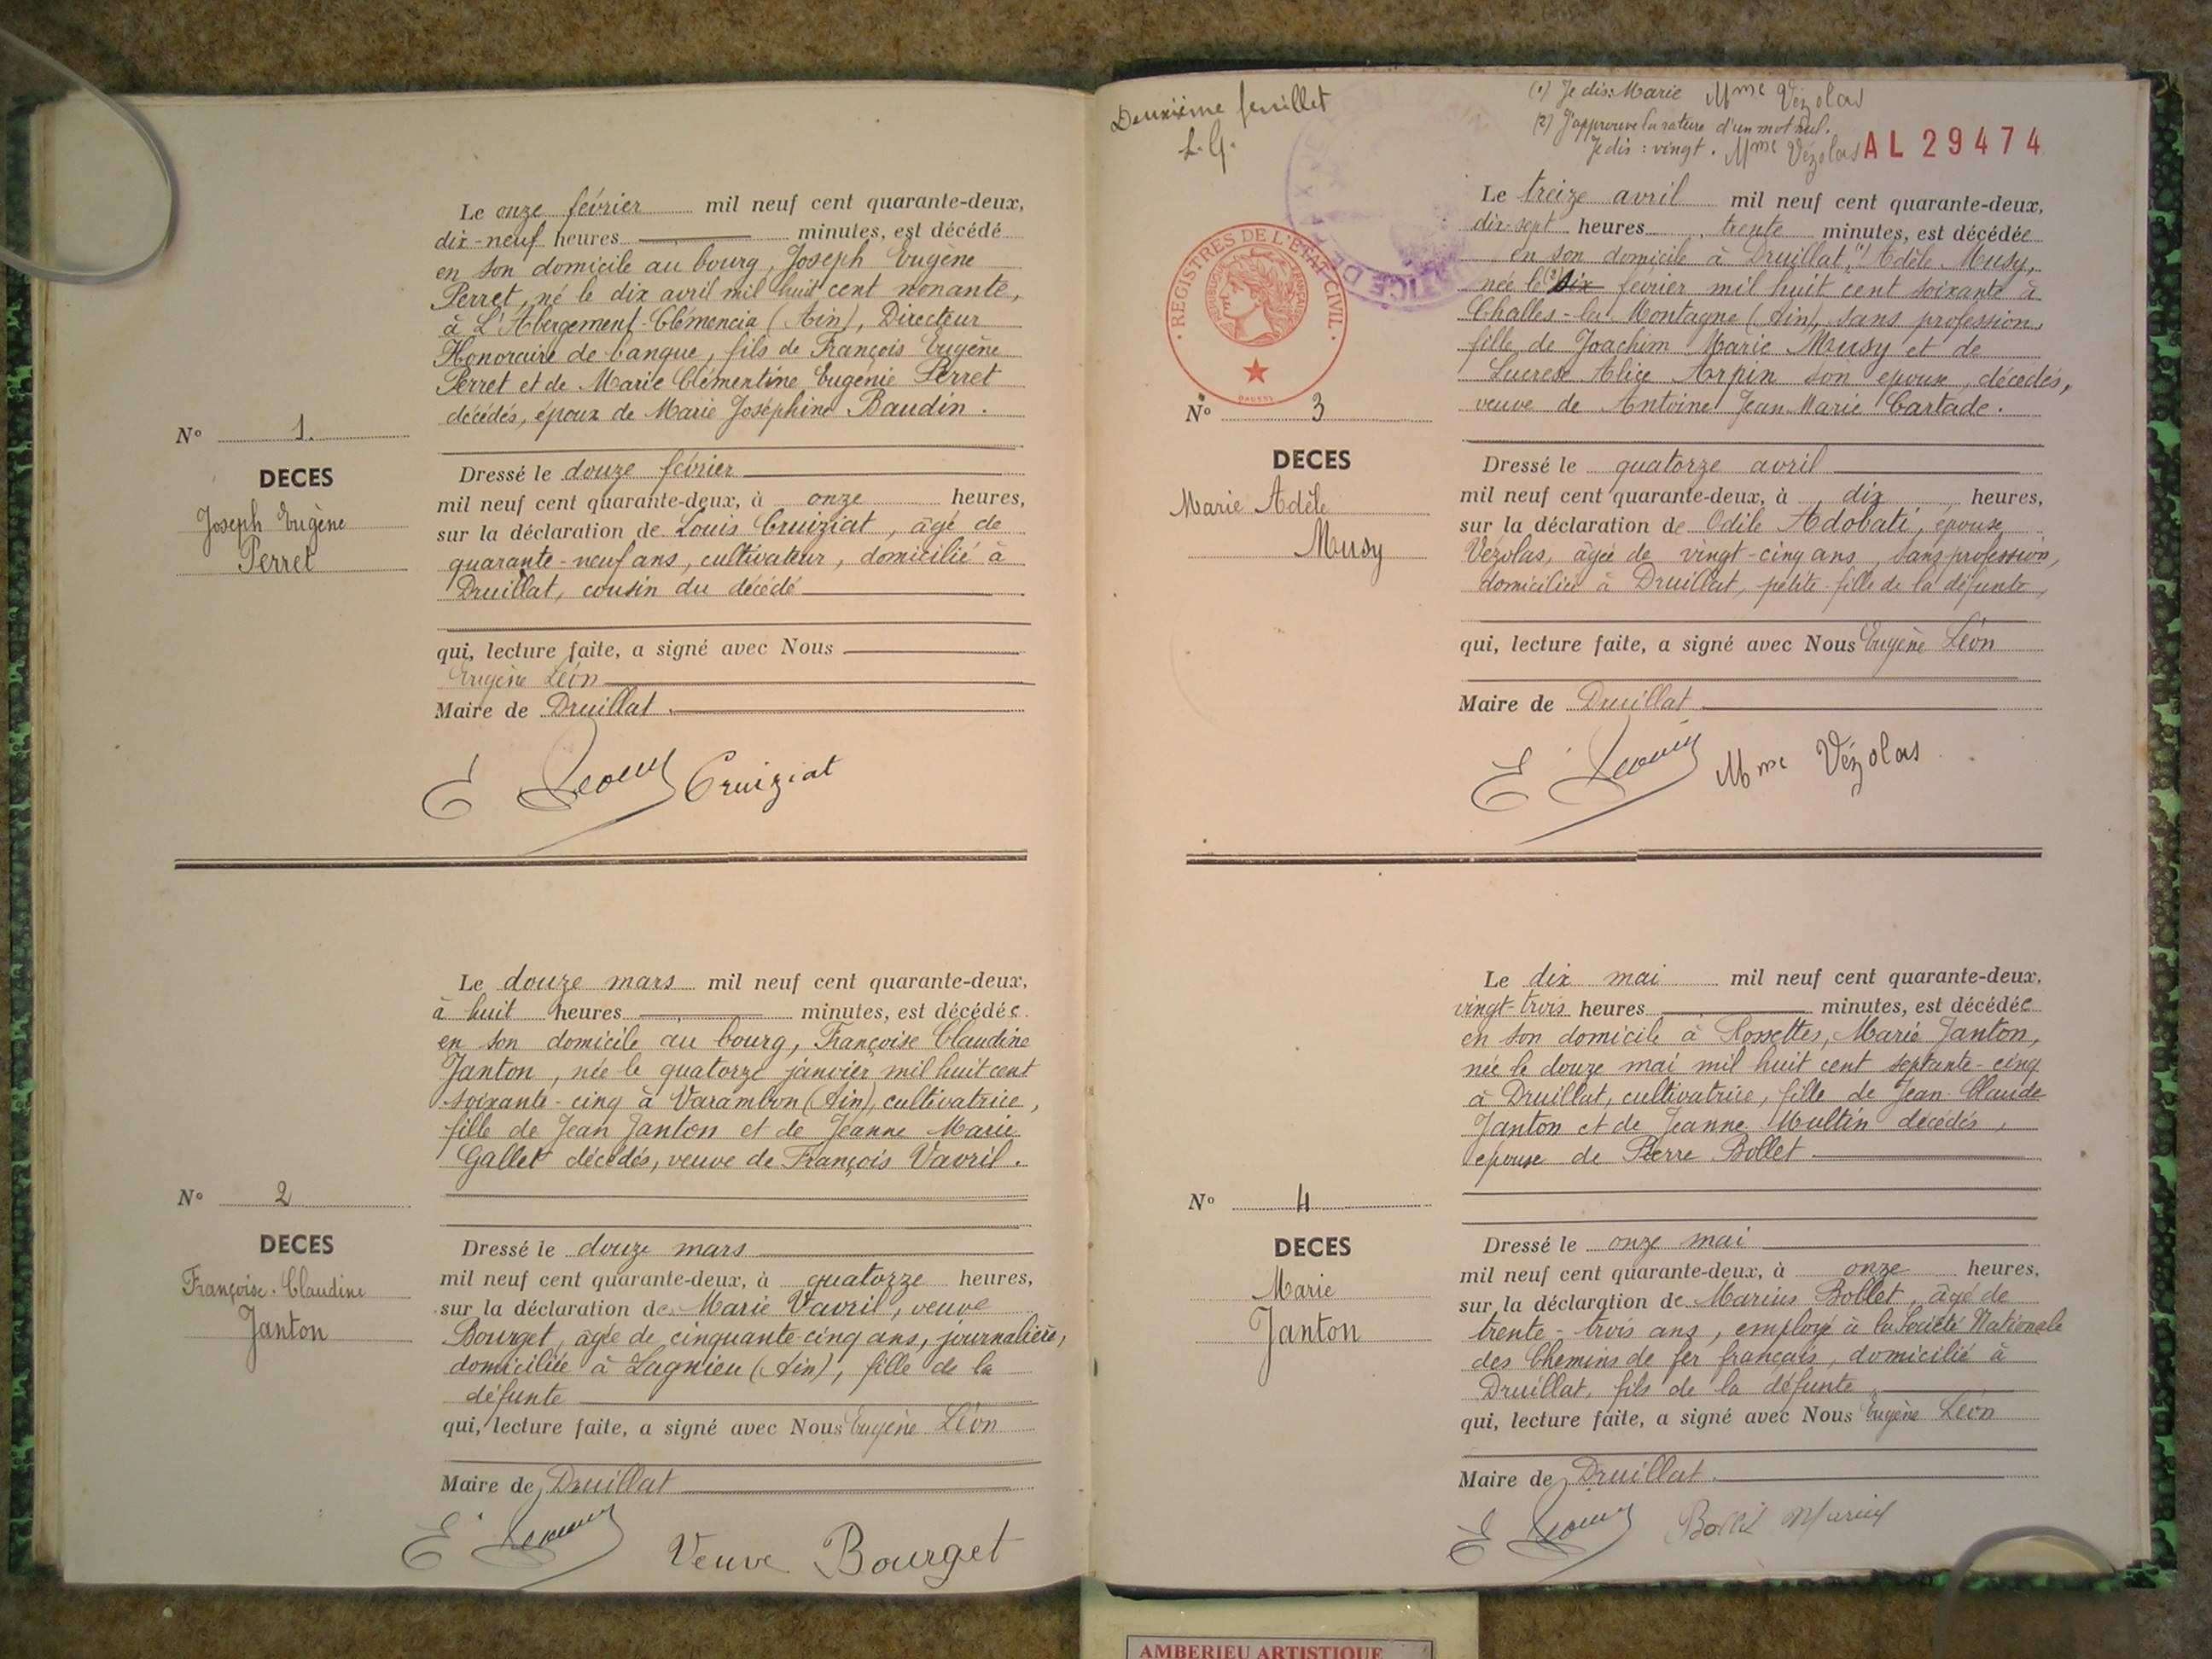 Le onze février mil neuf cent quarante-deux,
dix-neuf heures minutes, est décédé
en son domicile au bourg, Joseph Eugène
Perret, né le dix avril mil huit cent nonante,
à L'Abergement-Clémencia (Ain), Directeur
Honoraire de banque, fils de François Eugène
Perret et de Marie Clémentine Eugénie Perret
décédés, époux de Marie Joséphine Baudin.
No 1.
DECES
Joseph Eugène
Perret
Dressé le douze février
mil neuf cent quarante-deux, à onze heures,
sur la déclaration de Louis Cruiziat, âgé de
quarante-neuf ans, cultivateur, domicilié à
Druillat, cousin du décédé
qui, lecture faite, a signé avec Nous
Eugène Léon
Maire de Druillat.
E Cruiziat
Le douze mars mil neuf cent quarante-deux,
à huit heures minutes, est décédée
en son domicile au bourg, Françoise Claudine
Janton, née le quatorze janvier mil huit cent
soixante-cinq à Varambon (Ain), cultivatrice,
fille de Jean Janton et de Jeanne Marie
Gallet décédés, veuve de François Vavril.
No 2
DECES
Françoise-Claudine
Janton
Dressé le douze mars
mil neuf cent quarante-deux, à quatorze heures,
sur la déclaration de Marie Vavril, veuve
Bourget, âgée de cinquante cinq ans, journalière,
domiciliée à Lagnieu (Ain), fille de la
défunte
qui, lecture faite, a signé avec Nous Eugène Léon
Maire de Druillat
E Veuve Bourget
Deuxième feuillet
L.G.
(1) Je dis: Marie Mme Vézolas
(2) J'approuve la rature d'un mot nul.
Je dis : vingt. Mme Vézolas AL 29474
REGISTRES DE L'ETAT CIVIL
Le treize avril mil neuf cent quarante-deux,
dix-sept heures trente minutes, est décédée
en son domicile à Druillat, (1) Adèle Musy,
née le (2) six février mil huit cent soixante à
Challes-la Montagne (Ain), sans profession,
fille de Joachim Marie Musy et de
Alice Arpin son épouse, décédés,
veuve de Antoine Jean Marie Cartade.
No 3
DECES
Marie Adèle
Musy
Dressé le quatorze avril
mil neuf cent quarante-deux, à dix heures,
sur la déclaration de Odile Adobati, épouse
Vézolas, âgée de vingt-cinq ans, sans profession,
domiciliée à Druillat, petite-fille de la défunte,
qui, lecture faite, a signé avec Nous Eugène Léon
Maire de Druillat
E Mme Vézolas
Le dix mai mil neuf cent quarante-deux,
vingt-trois heures minutes, est décédée
en son domicile à Rossettes, Marie Janton,
née le douze mai mil huit cent septante-cinq
à Druillat, cultivatrice, fille de Jean-Claude
Janton et de Jeanne Multin décédés,
épouse de Pierre Bollet
No 4
DECES
Marie
Janton
Dressé le onze mai
mil neuf cent quarante-deux, à onze heures,
sur la déclaration de Marius Bollet, âgé de
trente-trois ans, employé à la Société Nationale
des Chemins de fer français, domicilié à
Druillat, fils de la défunte
qui, lecture faite, a signé avec Nous Eugène Léon
Maire de Druillat.
E Marius
AMBERIEU ARTISTIQUE